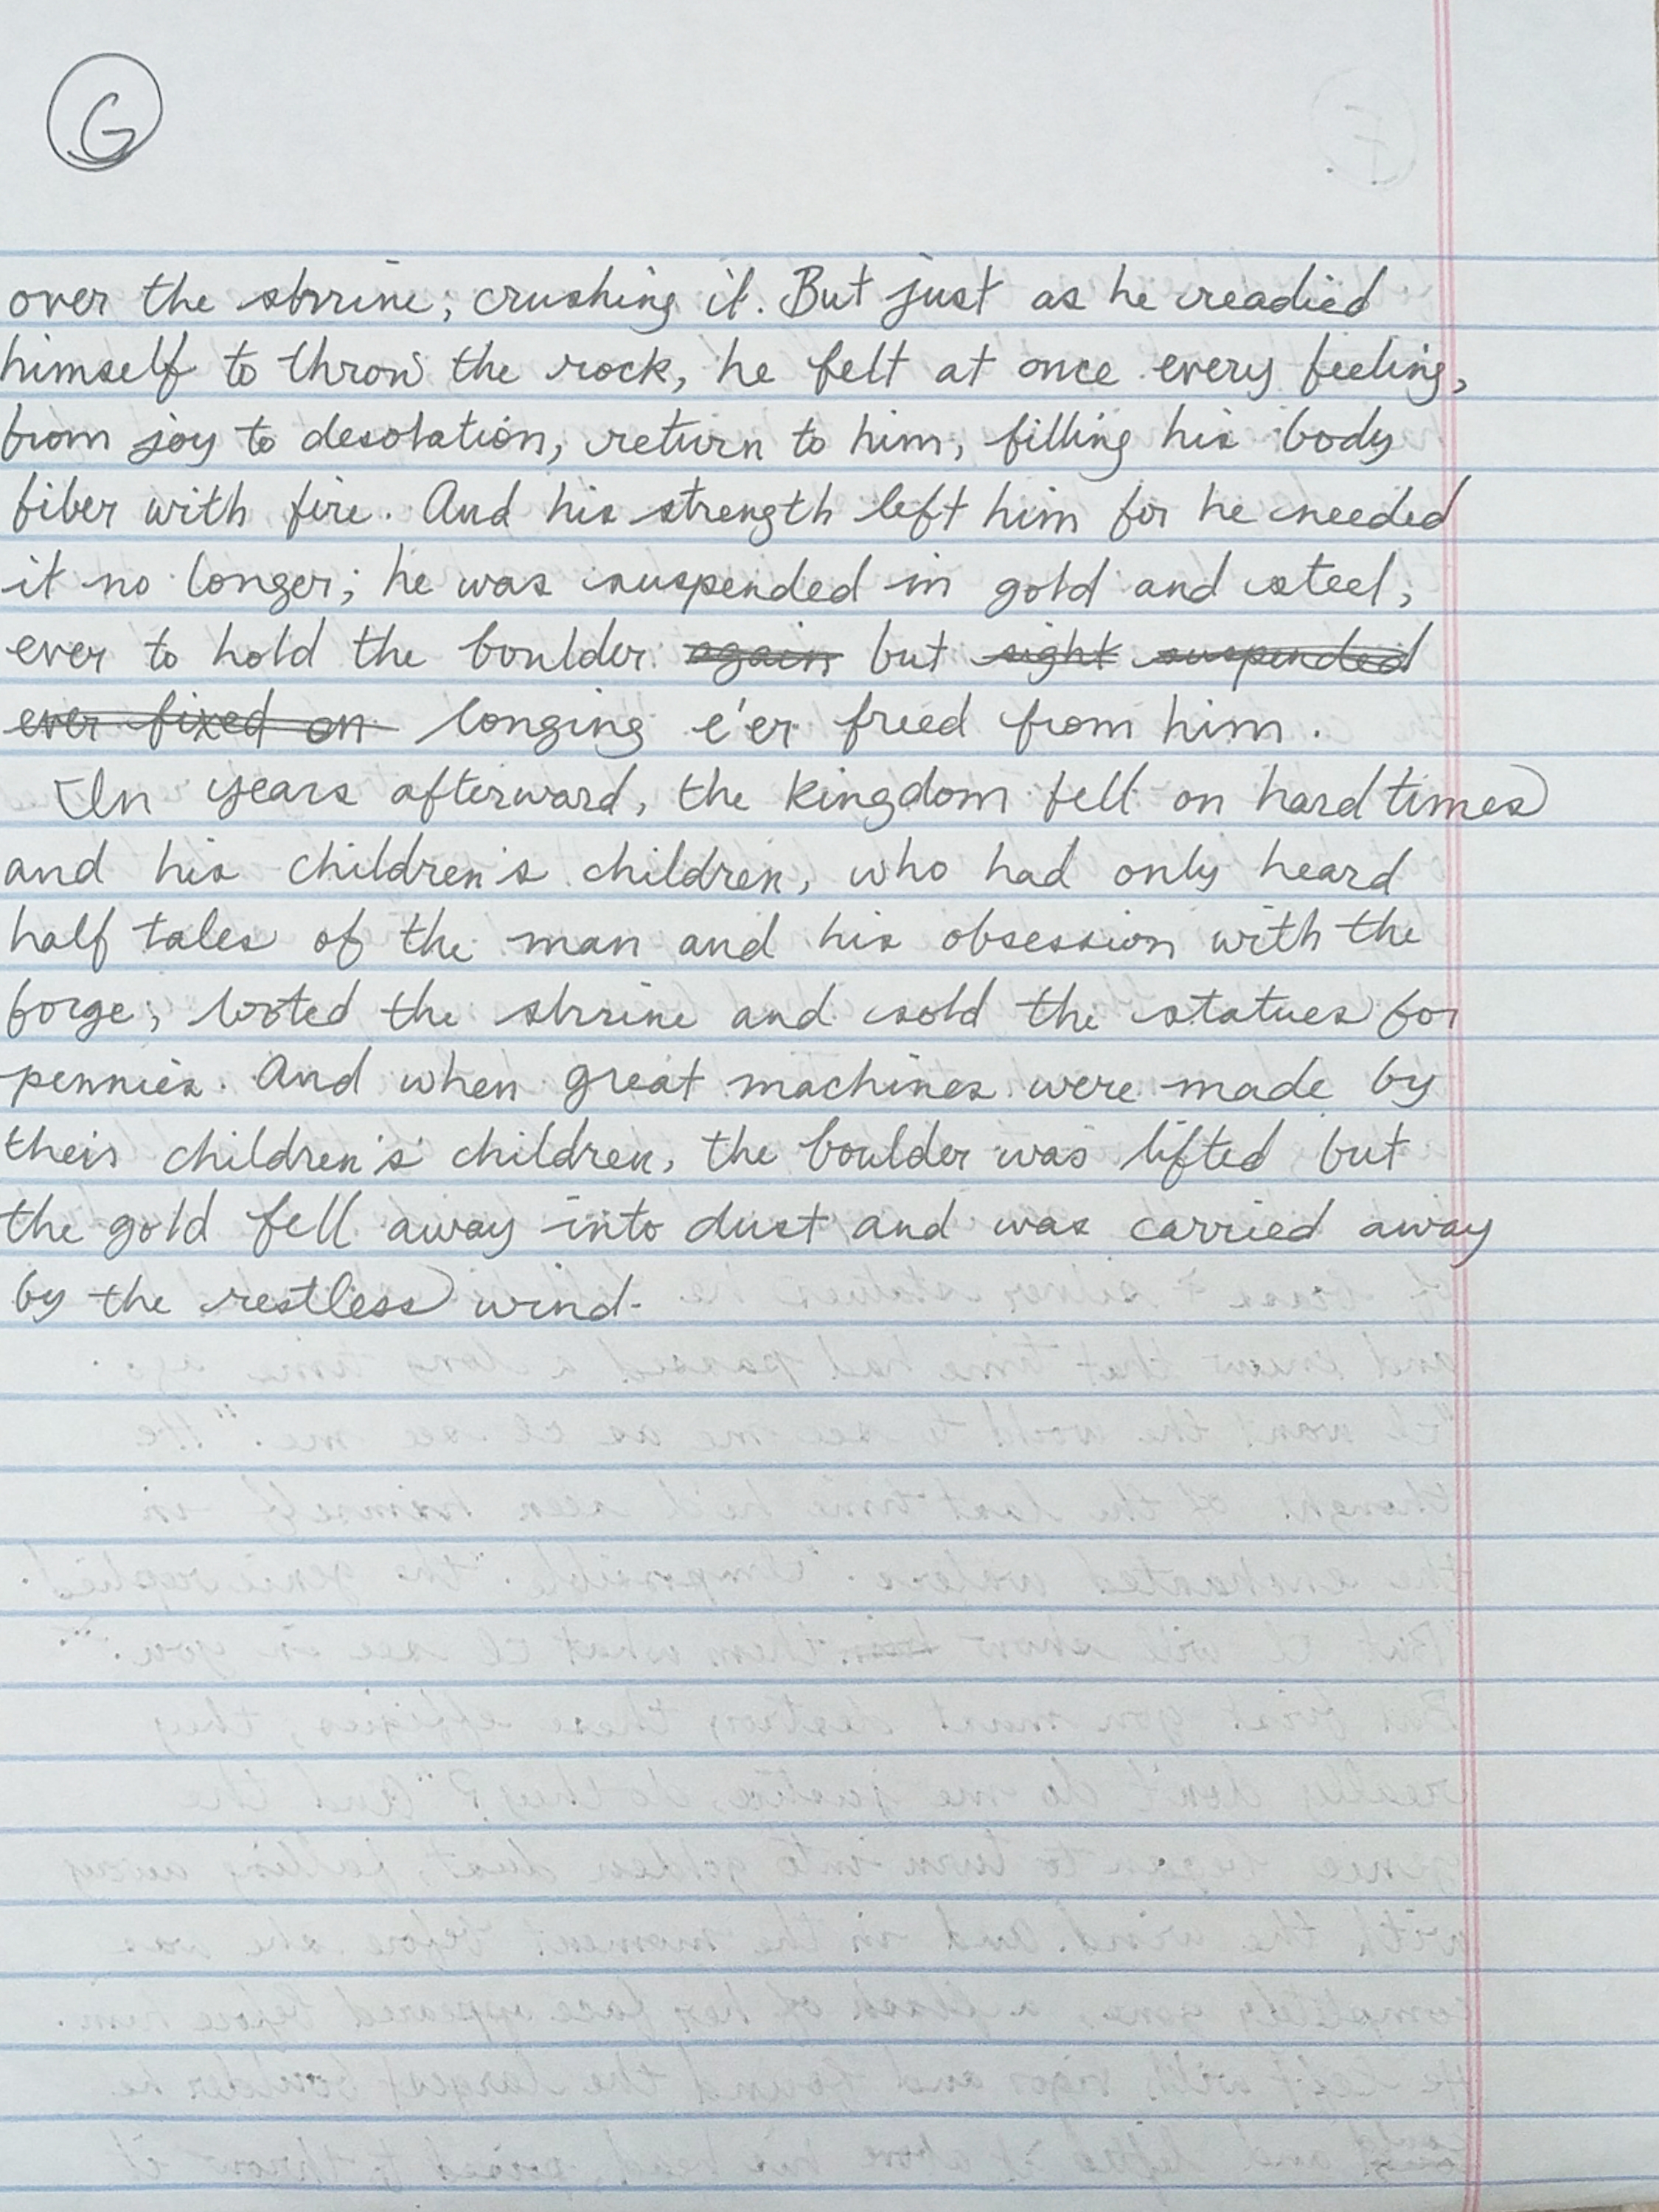 G
over the shrine; crushing it. But just as he readied
himself to throw the rock, he felt at once every feeling,
from joy to desolation, return to him, filling his body
fiber with fire. And his strength left him for he needed
it no longer; he was suspended in gold and steel;
ever to hold the boulder again but sight suspended
ever fixed on longing e'er freed from him.
In years afterward, the kingdom fell on hard times
and his children's children, who had only heard
half tales of the man and his obsession with the
forge, looted the shrine and sold the statues for
pennies. And when great machines were made by
their children's children, the boulder was lifted but
the gold fell away into dust and was carried away
by the restless wind.